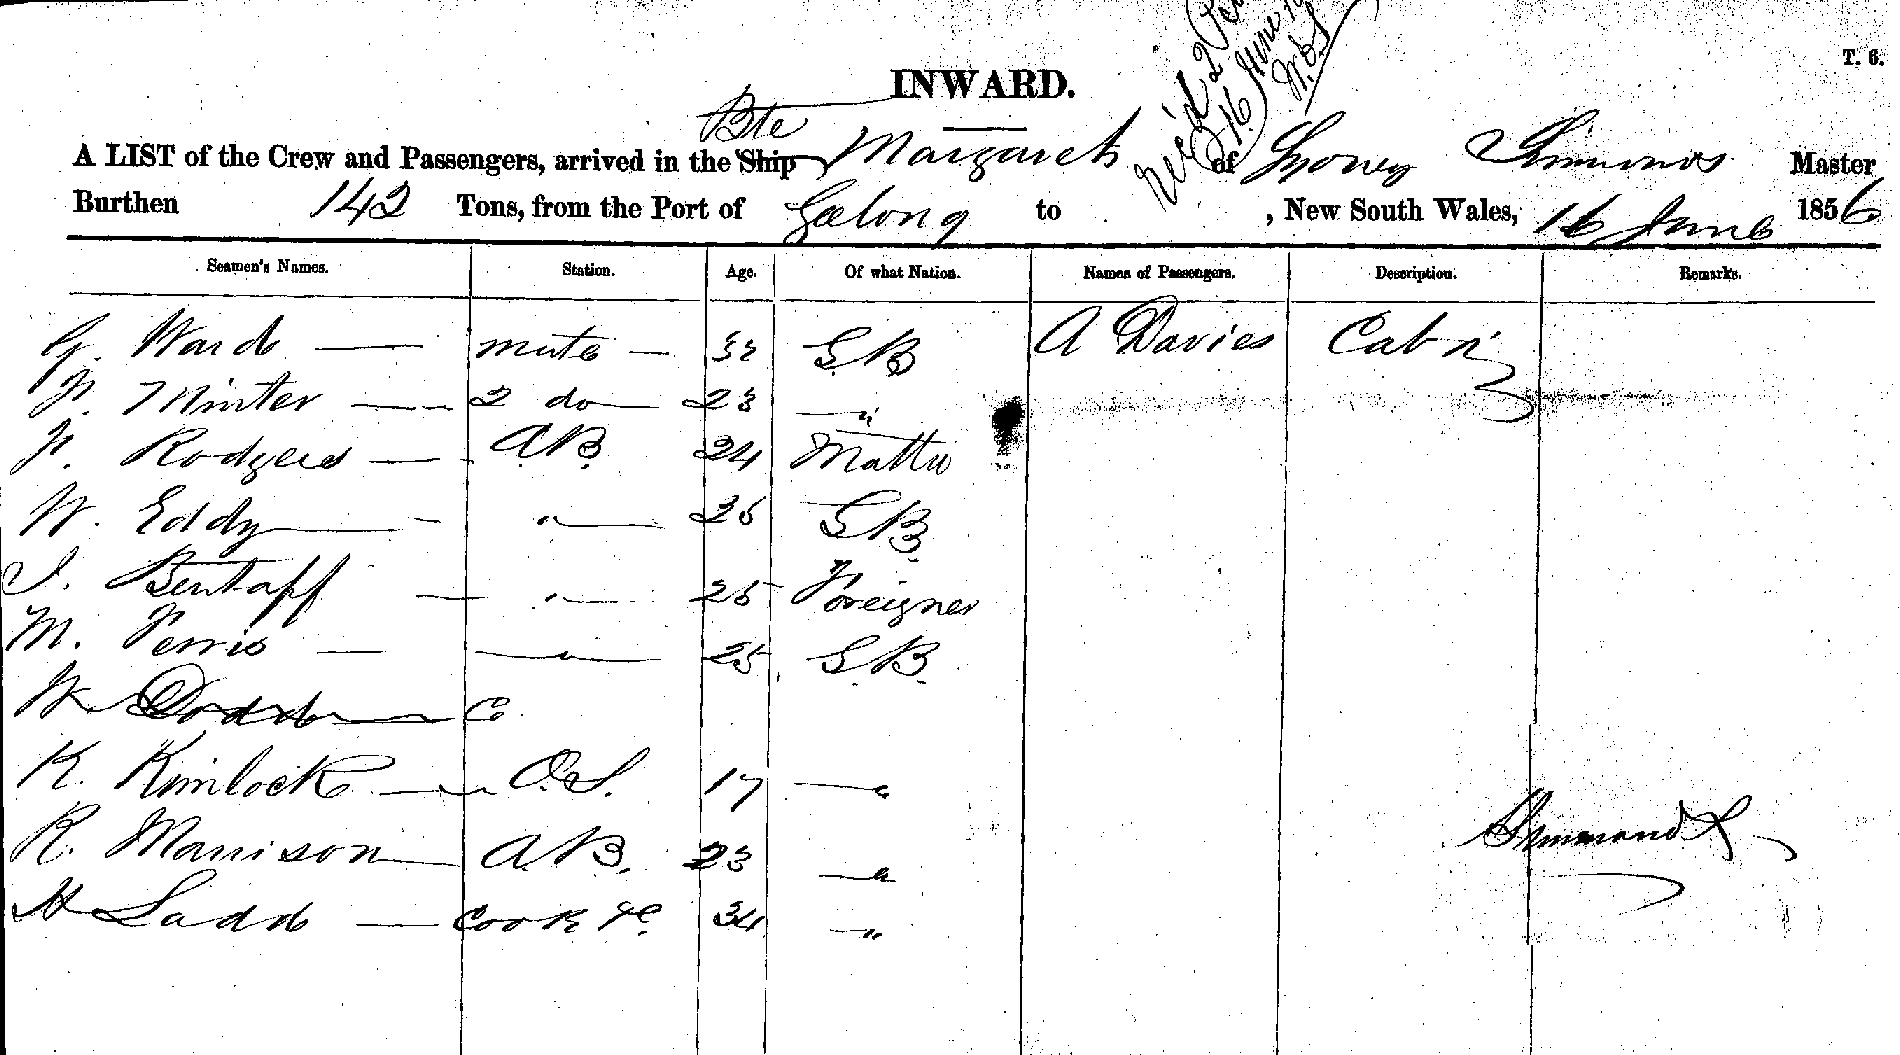 T. 6.
Rec'd 2
16 June
INWARD.
Bte
A LIST of the Crew and Passengers, arrived in the Ship Margaret of Sydney Simmonds Master
Burthen 142 Tons, from the Port of Geelong to , New South Wales, 16 June 1856
Seamen's Names. Station. Age. Of what Nation. Names of Passengers. Description. Remarks.
G. Ward — mate — 32 G.B A Davies Cabn
Minter — 2 do — 23 — "
Rodgers — A.B. 24
W. Eddy — " — 26 G.B.
J. Bentapf — " — 25 Foreigner
M. Ferris — — " — 25 G.B.
W. Dodds — C
K. Kimlock — O.S. 17 — "
R. Morrison — A.B. 23 — "
H Ladd — Cook &c. 34 — "
Simmonds